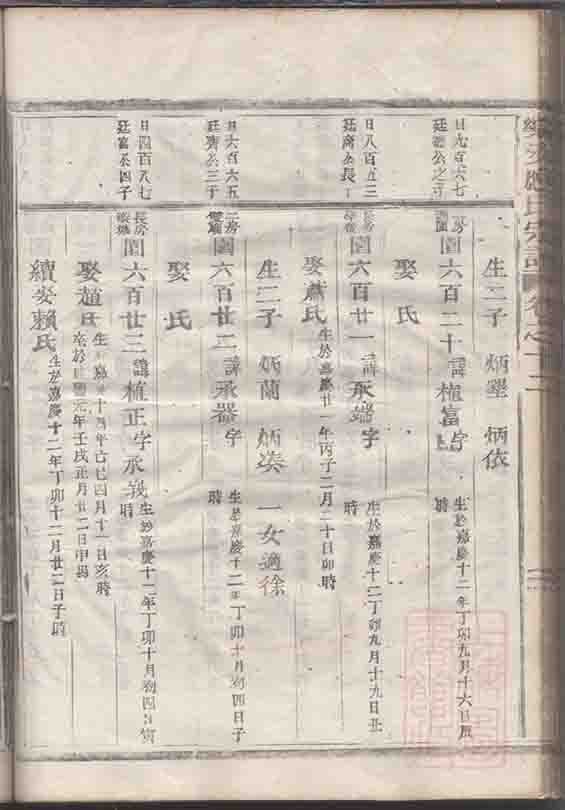 應氏宗譜 卷之十二
生二子 炳墨 炳依
日九百六七
廷 公之子
房
園六百二十諱植富字
生於嘉慶十二年丁卯九月十六日辰
時
娶 氏
日八百五三
廷 公長子
長房
園六百廿一諱承端字
生於嘉慶十二丁卯九月十九日丑
時
娶 氏
生於嘉慶廿一年丙子二月二十日卯時
生二子 炳蘭 炳 一女適徐
日六百六五
廷 公三子
二房
園六百廿二諱承器字
生於嘉慶十二年丁卯十月初四日子
時
娶 氏
日四百八七
廷富公四子
長房
園六百廿三諱植正字承義
生於嘉慶十二年丁卯十月初四日寅
時
娶趙氏
生於嘉慶十四年己巳四月十一日亥時
卒於 元年壬戌正月廿二日申時
續娶賴氏
生於嘉慶十二年丁卯十二月廿二日子時